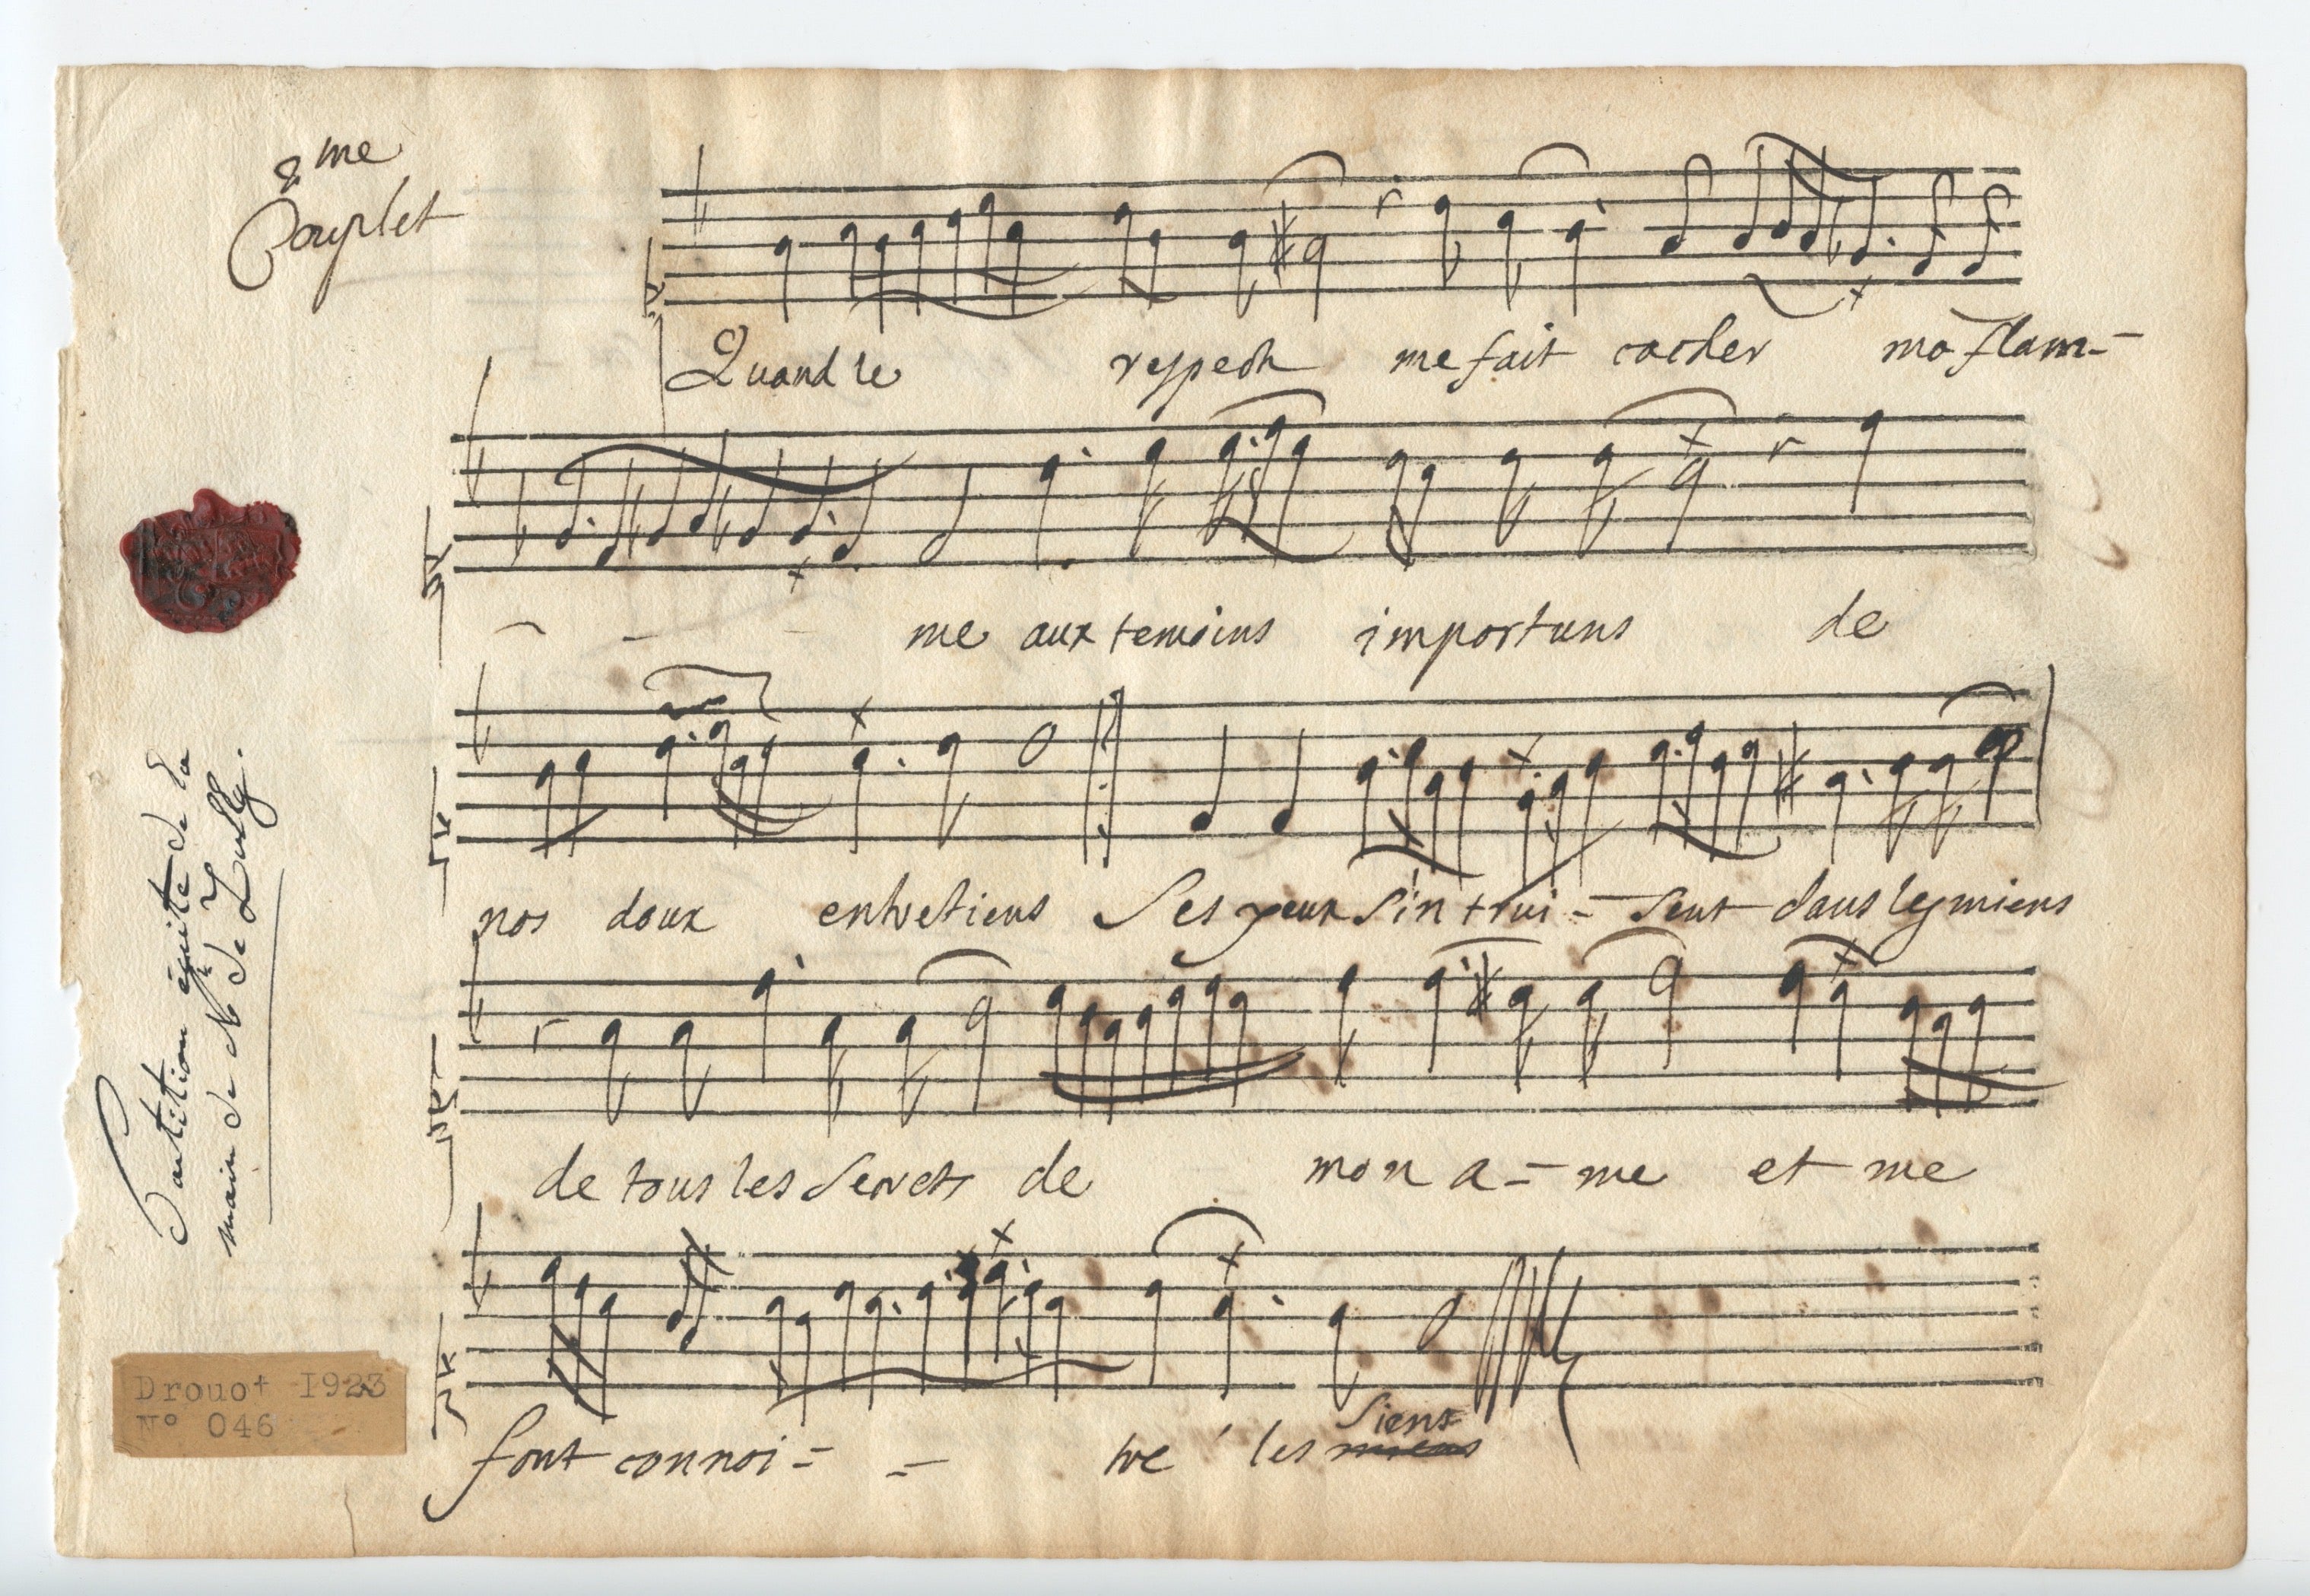 2me
Couplet
Quand le respect me fait cacher ma flam-
- - me aux temoins importuns de
nos doux entretiens Ses yeux s'intrui - sent dans les miens
de tous les secrets de mon a - me et me
font connoi - - tre les miens
siens
Partition écrite de la
main de Mr de Lully.
Drouot 1923
N° 046